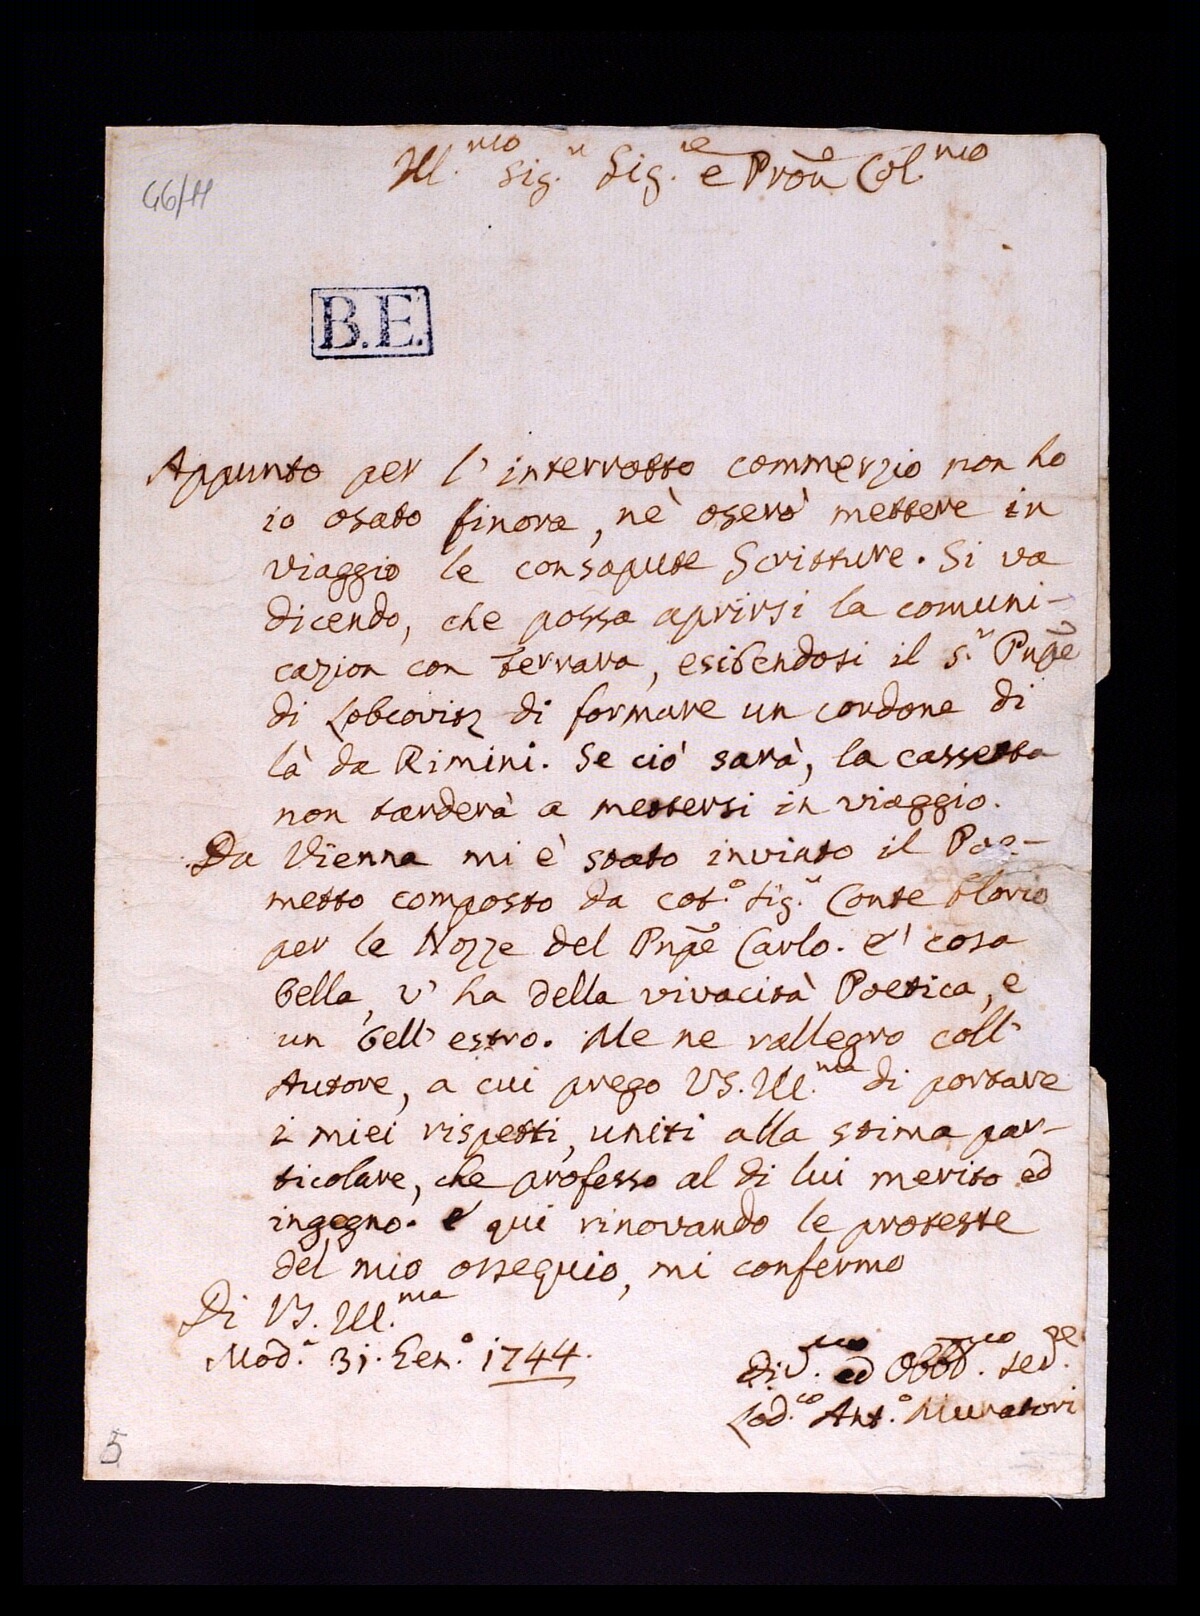 Ill.mo Sig.r Sig.re e Pron Col.mo
46/H
B.E.
Appunto per l' interrotto commerzio non ho
io osato finora, nè oserò mettere in
viaggio le consapute Scritture. Si va
dicendo, che possa aprirsi la comuni-
cazion con Ferrara, esibendosi il S.r Pnpe
di Lobcovitz di formare un cordone di
là da Rimini. Se ciò sarà, la cassetta
non tarderà a mettersi in viaggio.
Da Vienna mi è stato inviato il Poe-
metto composto da cot.o Sig.r Conte Florio
per le Nozze del Pnpe Carlo. E' cosa
bella, v' ha della vivacità Poetica, e
un bell' estro. Me ne rallegro coll'
Autore, a cui prego VS. Ill.ma di portare
i miei rispetti, uniti alla stima par-
ticolare, che professo al di lui merito ed
ingegno. E qui rinovando le proteste
del mio ossequio, mi confermo
Di VS. Ill.ma
Mod.a 31. Gen.o 1744.
Div.mo ed Obbl.mo Ser.re
Lod.co Ant.o Muratori
5